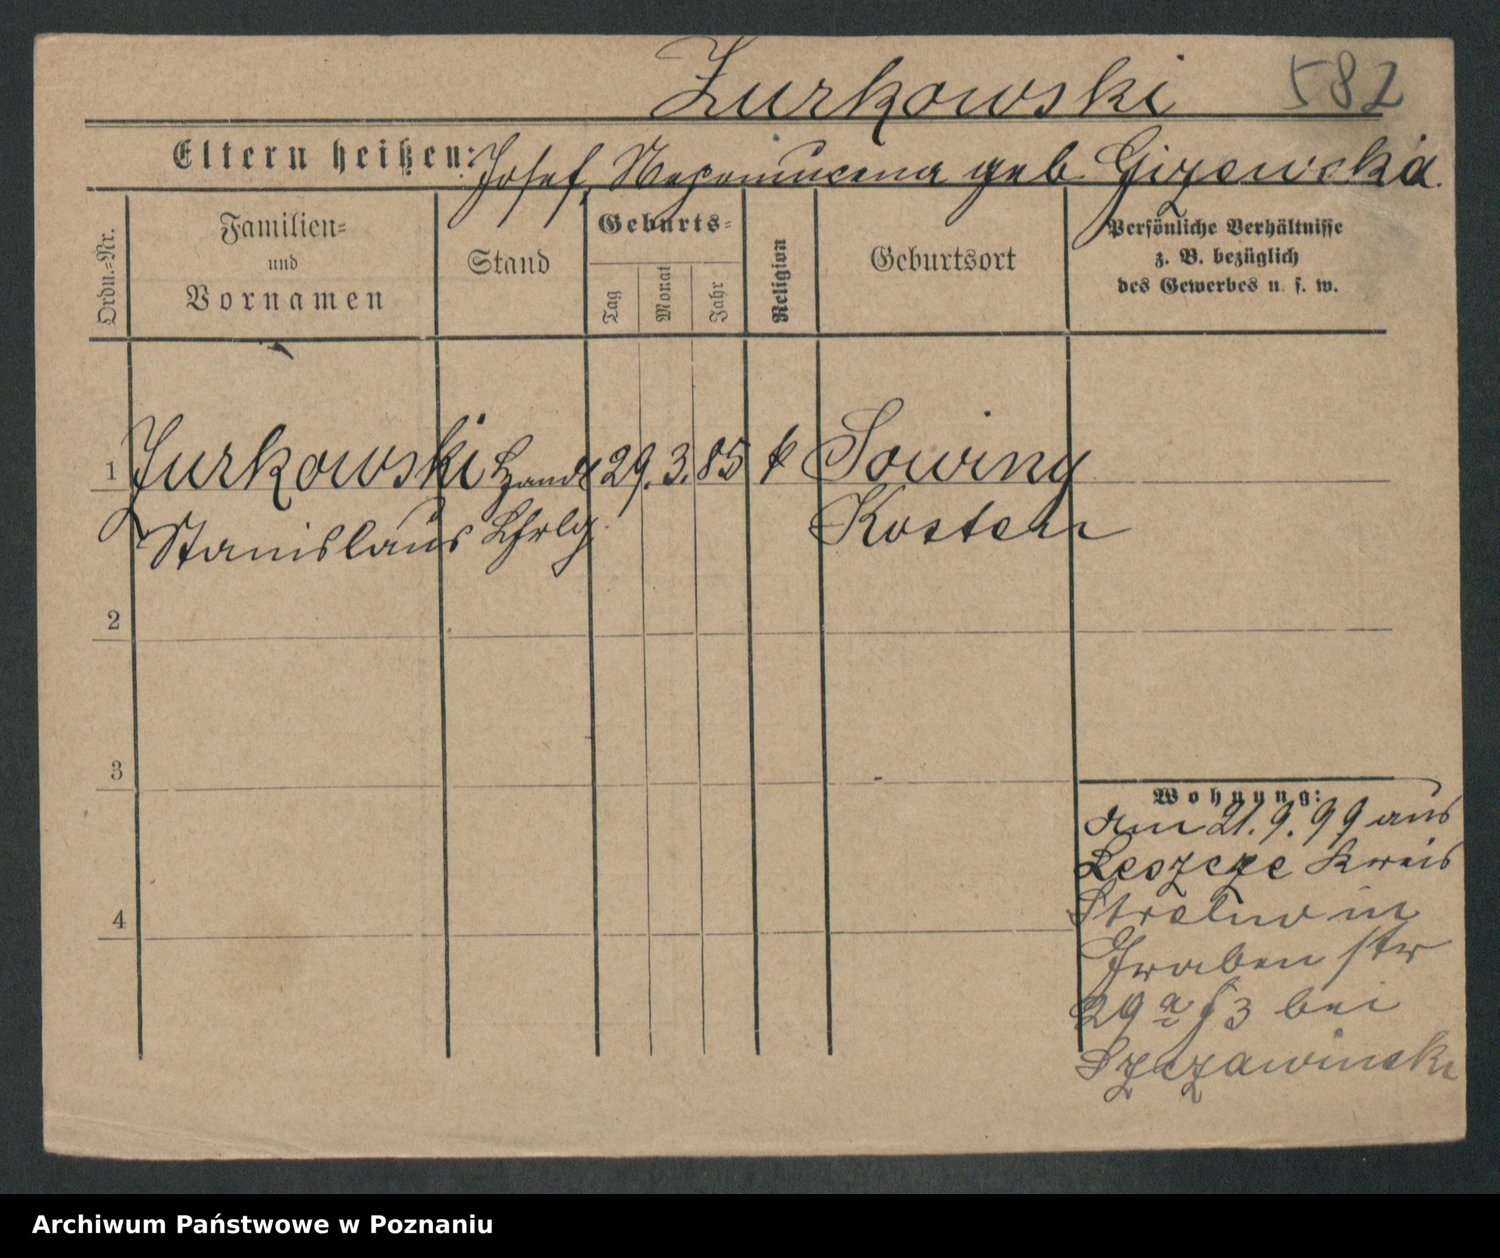 Zurkowski 582
Eltern heißen: Josef, Nepomucena geb Gizewska.
Ordn.=Nr.
Familien=
und
Vornamen
Stand
Geburts=
Tag
Monat
Jahr
Religion
Geburtsort
Persönliche Verhältnisse
z. B. bezüglich
des Gewerbes u. s. w.
1 Zurkowski Handl 29. 3. 85 k Sowiny
Stanislaus Lhrlg. Kosten
2
3
Wohnung:
Am 21. 9. 99 aus
Leszcze Kreis
Strelno in
4
Graben str
29 a 3 bei
Szczawinski
Archiwum Państwowe w Poznaniu